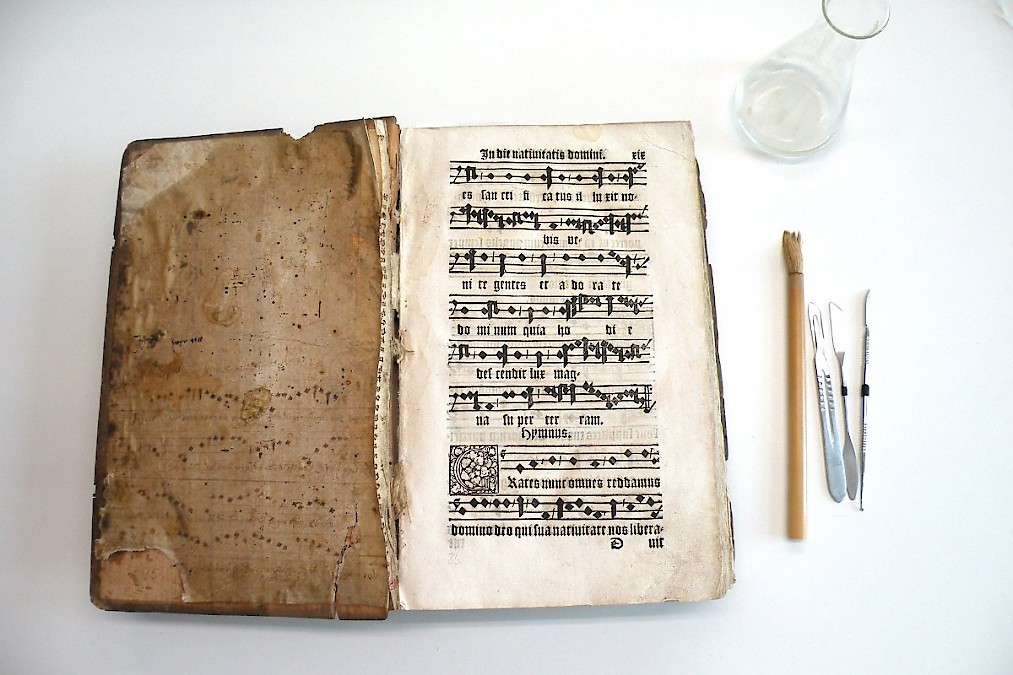 In die nativitatis domini. xix
es san cti fi ca tus il lu xit no-
bis ve-
ni te gentes et a do ra te
do mi num quia ho di e
des cendit lux mag-
na su per ter ram.
Hymnus.
Rates nunc omnes reddamus
domino deo qui sua nativitate nos libera-
D uit